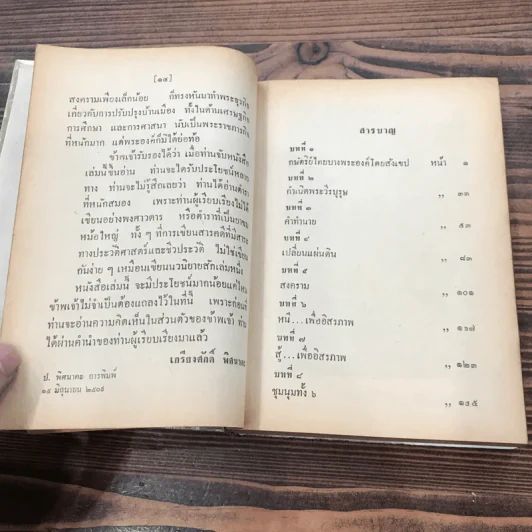 [๑๔]
สงครามเพียงเล็กน้อย ก็ทรงหันมาทำพระธุรกิจ
เกี่ยวกับการปรับปรุงบ้านเมือง ทั้งในด้านเศรษฐกิจ
การศึกษา และการศาสนา นับเป็นพระราชภารกิจ
ที่หนักมาก แต่พระองค์ก็มิได้ย่อท้อ
ข้าพเจ้ารับรองได้ว่า เมื่อท่านจับหนังสือ
เล่มนี้ขึ้นอ่าน ท่านจะได้รับประโยชน์หลาย
ทาง ท่านจะไม่รู้สึกเลยว่า ท่านได้อ่านตำรา
ที่หนักสมอง เพราะท่านผู้เรียบเรียงไม่ได้
เขียนอย่างพงศาวดาร หรือตำราที่เป็นยาขม
หม้อใหญ่ ทั้ง ๆ ที่การเขียนสารคดีที่มีสาระ
ทางประวัติศาสตร์และชีวประวัติ ไม่ใช่เขียน
กันง่าย ๆ เหมือนเขียนนวนิยายสักเล่มหนึ่ง
หนังสือเล่มนี้ จะมีประโยชน์มากน้อยแค่ไหน
ข้าพเจ้าไม่จำเป็นต้องแถลงไว้ในที่นี้ เพราะก่อนที่
ท่านจะอ่านความคิดเห็นในส่วนตัวของข้าพเจ้า ท่าน
ได้ผ่านคำนำของท่านผู้เรียบเรียงมาแล้ว
เกรียงศักดิ์ พิศนาคะ
ป. พิศนาคะ การพิมพ์
๑๕ มิถุนายน ๒๕๐๙
สารบาญ
บทที่ ๑
กษัตริย์ไทยบางพระองค์โดยสังเขป หน้า ๑
บทที่ ๒
กำเนิดพระวีรบุรุษ ,, ๓๓
บทที่ ๓
คำทำนาย ,, ๕๓
บทที่ ๔
เปลี่ยนแผ่นดิน ,, ๘๓
บทที่ ๕
สงคราม ,, ๑๐๑
บทที่ ๖
หนี...เพื่ออิสรภาพ ,, ๑๑๗
บทที่ ๗
สู้...เพื่ออิสรภาพ ,, ๑๒๓
บทที่ ๘
ชุมนุมทั้ง ๖ ,, ๑๔๕